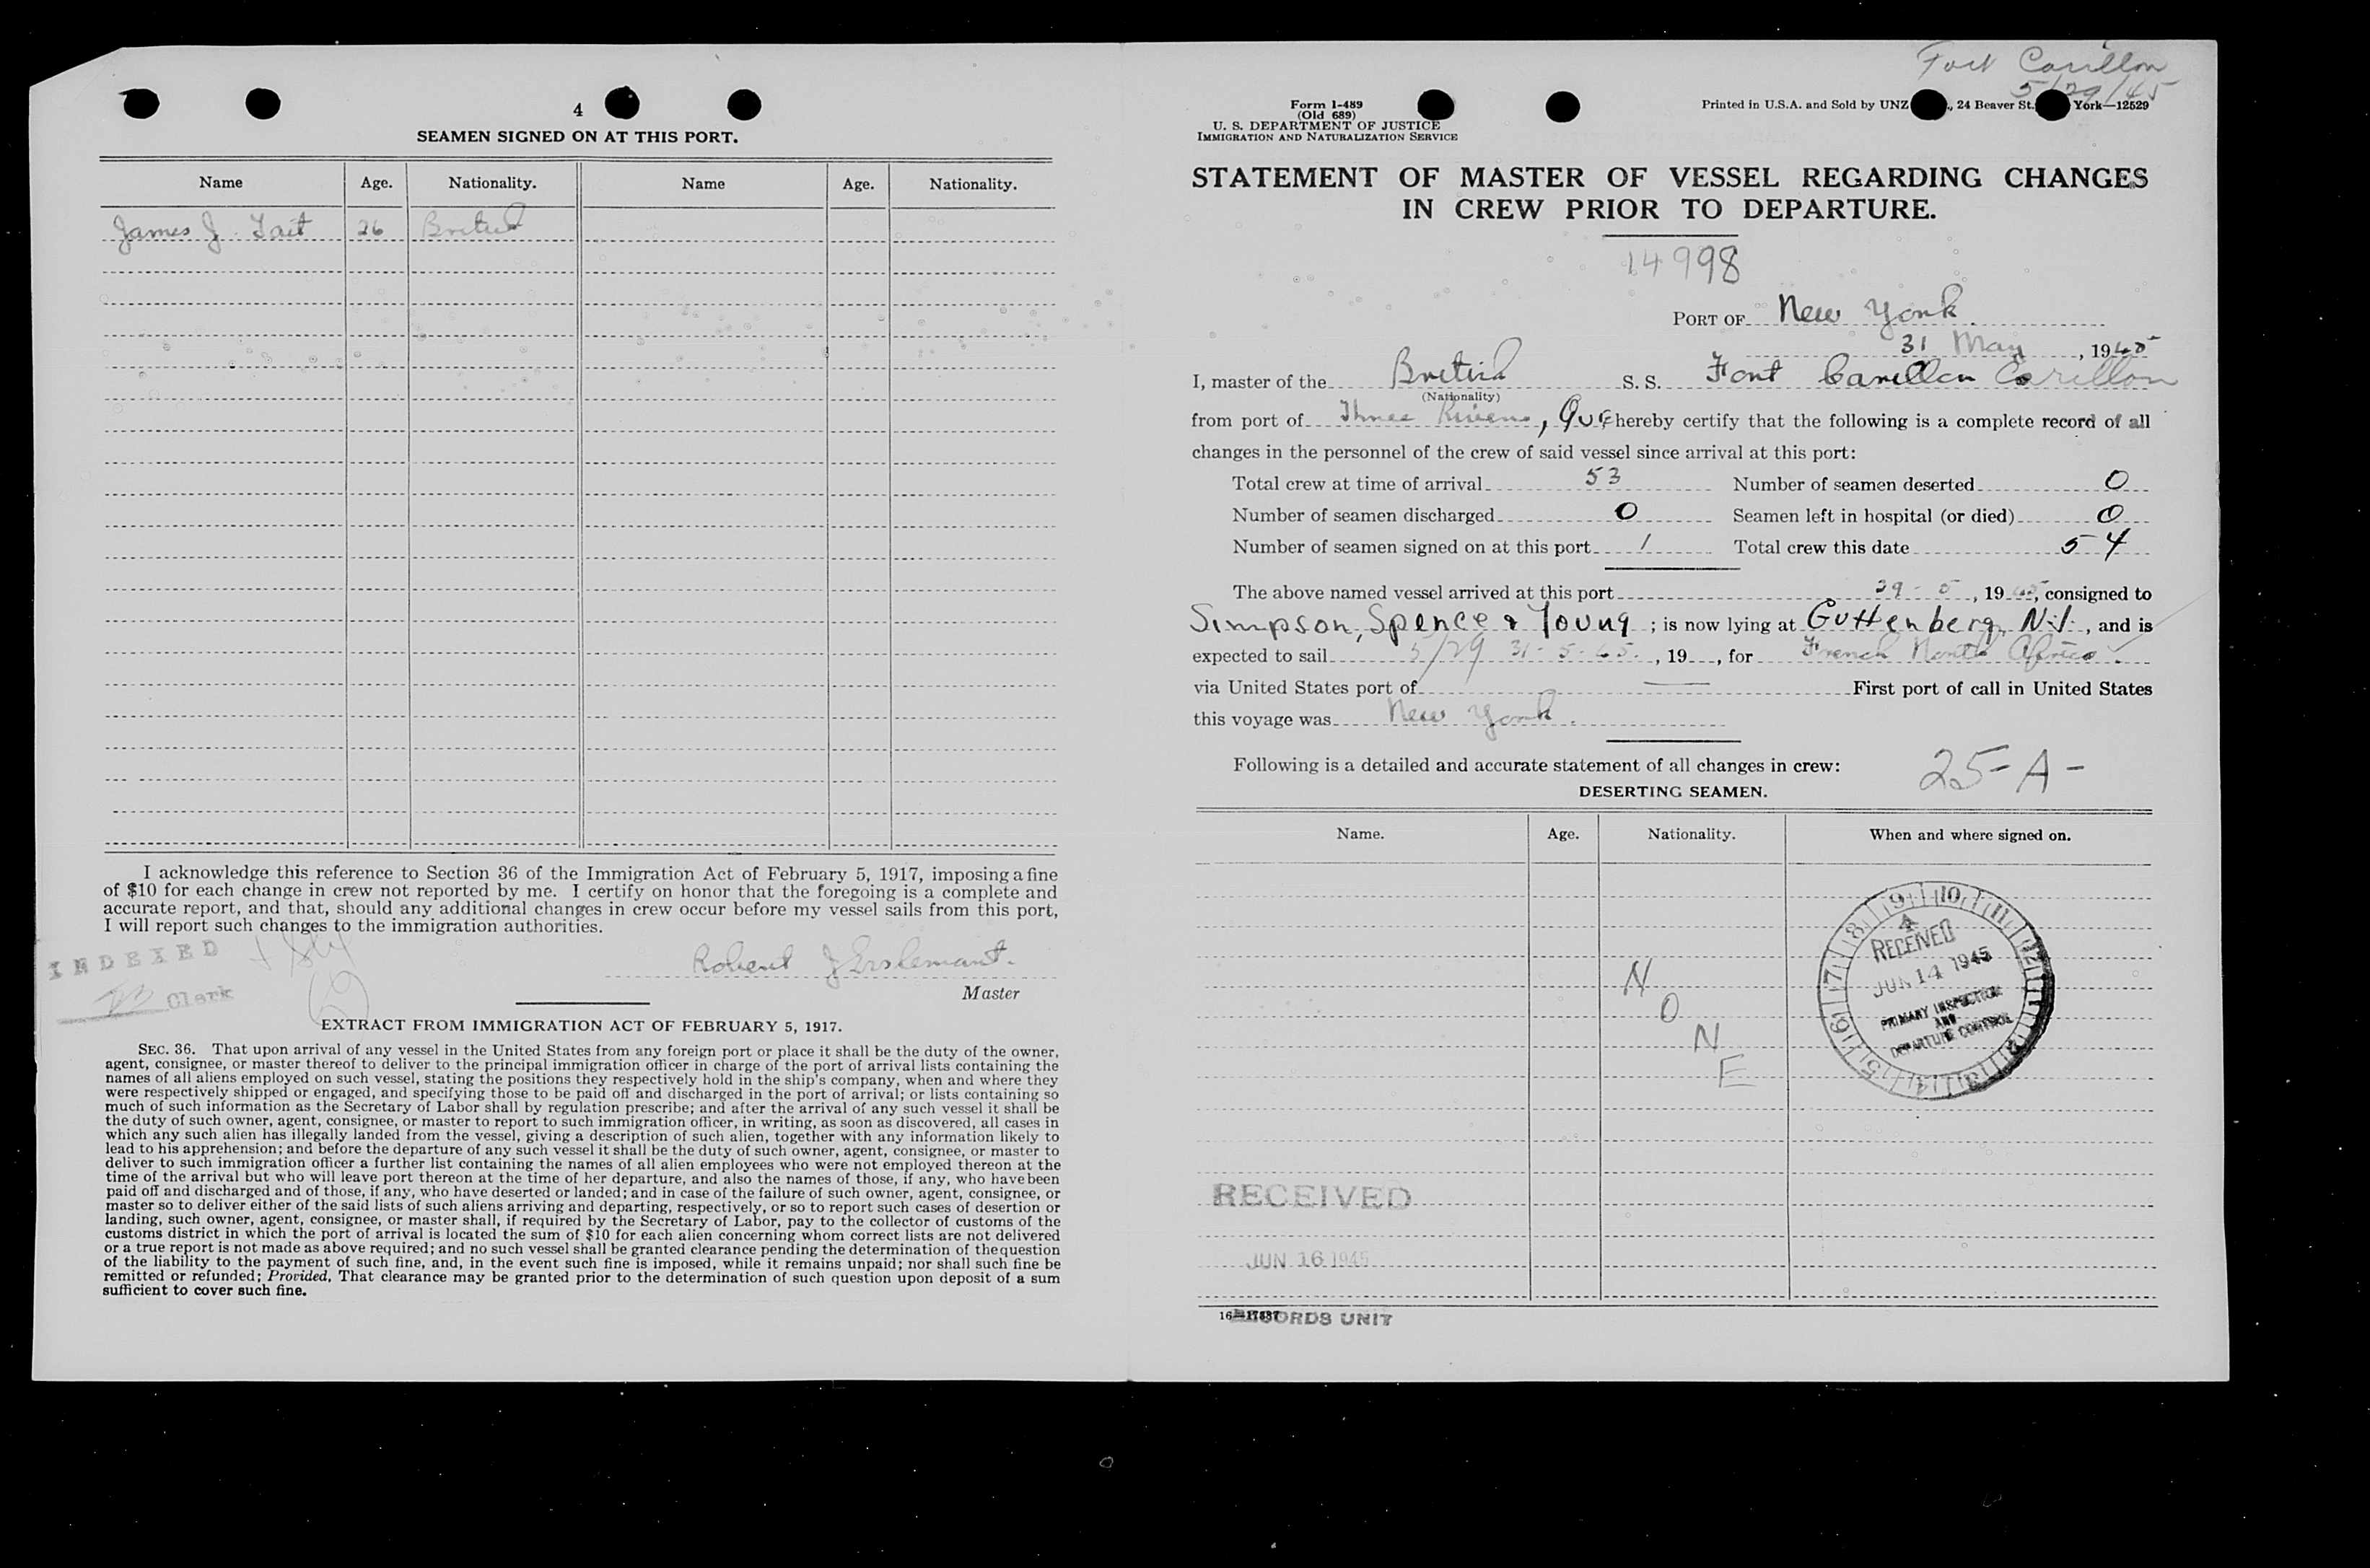 4
SEAMEN SIGNED ON AT THIS PORT.
Name Age. Nationality. Name Age. Nationality.
James J. Tait 26 British
I acknowledge this reference to Section 36 of the Immigration Act of February 5, 1917, imposing a fine
of $10 for each change in crew not reported by me. I certify on honor that the foregoing is a complete and
accurate report, and that, should any additional changes in crew occur before my vessel sails from this port,
I will report such changes to the immigration authorities.
INDEXED
Clerk
Robert J
Master
EXTRACT FROM IMMIGRATION ACT OF FEBRUARY 5, 1917.
SEC. 36. That upon arrival of any vessel in the United States from any foreign port or place it shall be the duty of the owner,
agent, consignee, or master thereof to deliver to the principal immigration officer in charge of the port of arrival lists containing the
names of all aliens employed on such vessel, stating the positions they respectively hold in the ship's company, when and where they
were respectively shipped or engaged, and specifying those to be paid off and discharged in the port of arrival; or lists containing so
much of such information as the Secretary of Labor shall by regulation prescribe; and after the arrival of any such vessel it shall be
the duty of such owner, agent, consignee, or master to report to such immigration officer, in writing, as soon as discovered, all cases in
which any such alien has illegally landed from the vessel, giving a description of such alien, together with any information likely to
lead to his apprehension; and before the departure of any such vessel it shall be the duty of such owner, agent, consignee, or master to
deliver to such immigration officer a further list containing the names of all alien employees who were not employed thereon at the
time of the arrival but who will leave port thereon at the time of her departure, and also the names of those, if any, who have been
paid off and discharged and of those, if any, who have deserted or landed; and in case of the failure of such owner, agent, consignee, or
master so to deliver either of the said lists of such aliens arriving and departing, respectively, or so to report such cases of desertion or
landing, such owner, agent, consignee, or master shall, if required by the Secretary of Labor, pay to the collector of customs of the
customs district in which the port of arrival is located the sum of $10 for each alien concerning whom correct lists are not delivered
or a true report is not made as above required; and no such vessel shall be granted clearance pending the determination of the question
of the liability to the payment of such fine, and, in the event such fine is imposed, while it remains unpaid; nor shall such fine be
remitted or refunded; Provided, That clearance may be granted prior to the determination of such question upon deposit of a sum
sufficient to cover such fine.
Fort Carillon
5/29/45
Form I-489
(Old 689)
U. S. DEPARTMENT OF JUSTICE
IMMIGRATION AND NATURALIZATION SERVICE
Printed in U.S.A. and Sold by UNZ ., 24 Beaver St. York—12529
STATEMENT OF MASTER OF VESSEL REGARDING CHANGES
IN CREW PRIOR TO DEPARTURE.
14998
PORT OF New York
31 May, 1945
I, master of the British S. S. Fort Carillon Carillon
(Nationality)
from port of Three Rivers, Que hereby certify that the following is a complete record of all
changes in the personnel of the crew of said vessel since arrival at this port:
Total crew at time of arrival 53 Number of seamen deserted 0
Number of seamen discharged 0 Seamen left in hospital (or died) 0
Number of seamen signed on at this port 1 Total crew this date 54
The above named vessel arrived at this port 29-5, 1945, consigned to
Simpson, Spence & Young; is now lying at Guttenberg, N.J., and is
expected to sail 5/29 31-5-45, 19 , for French North Africa.
via United States port of — First port of call in United States
this voyage was New York.
Following is a detailed and accurate statement of all changes in crew:
25-A-
DESERTING SEAMEN.
Name. Age. Nationality. When and where signed on.
NONE
RECEIVED
JUN 14 1945
PRIMARY INSPECTION
AND
DEPARTURE CONTROL
RECEIVED
JUN 16 1945
RECORDS UNIT